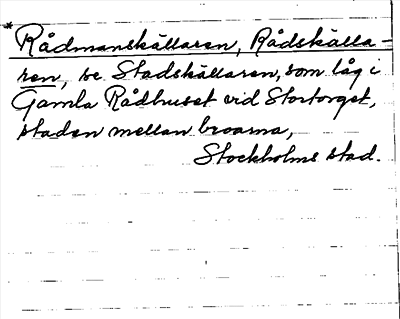 *Rådmanskällaren, Rådskälla-
ren, se Stadskällaren, som låg i
Gamla Rådhuset vid Stortorget,
staden mellan broarna,
Stockholms stad.